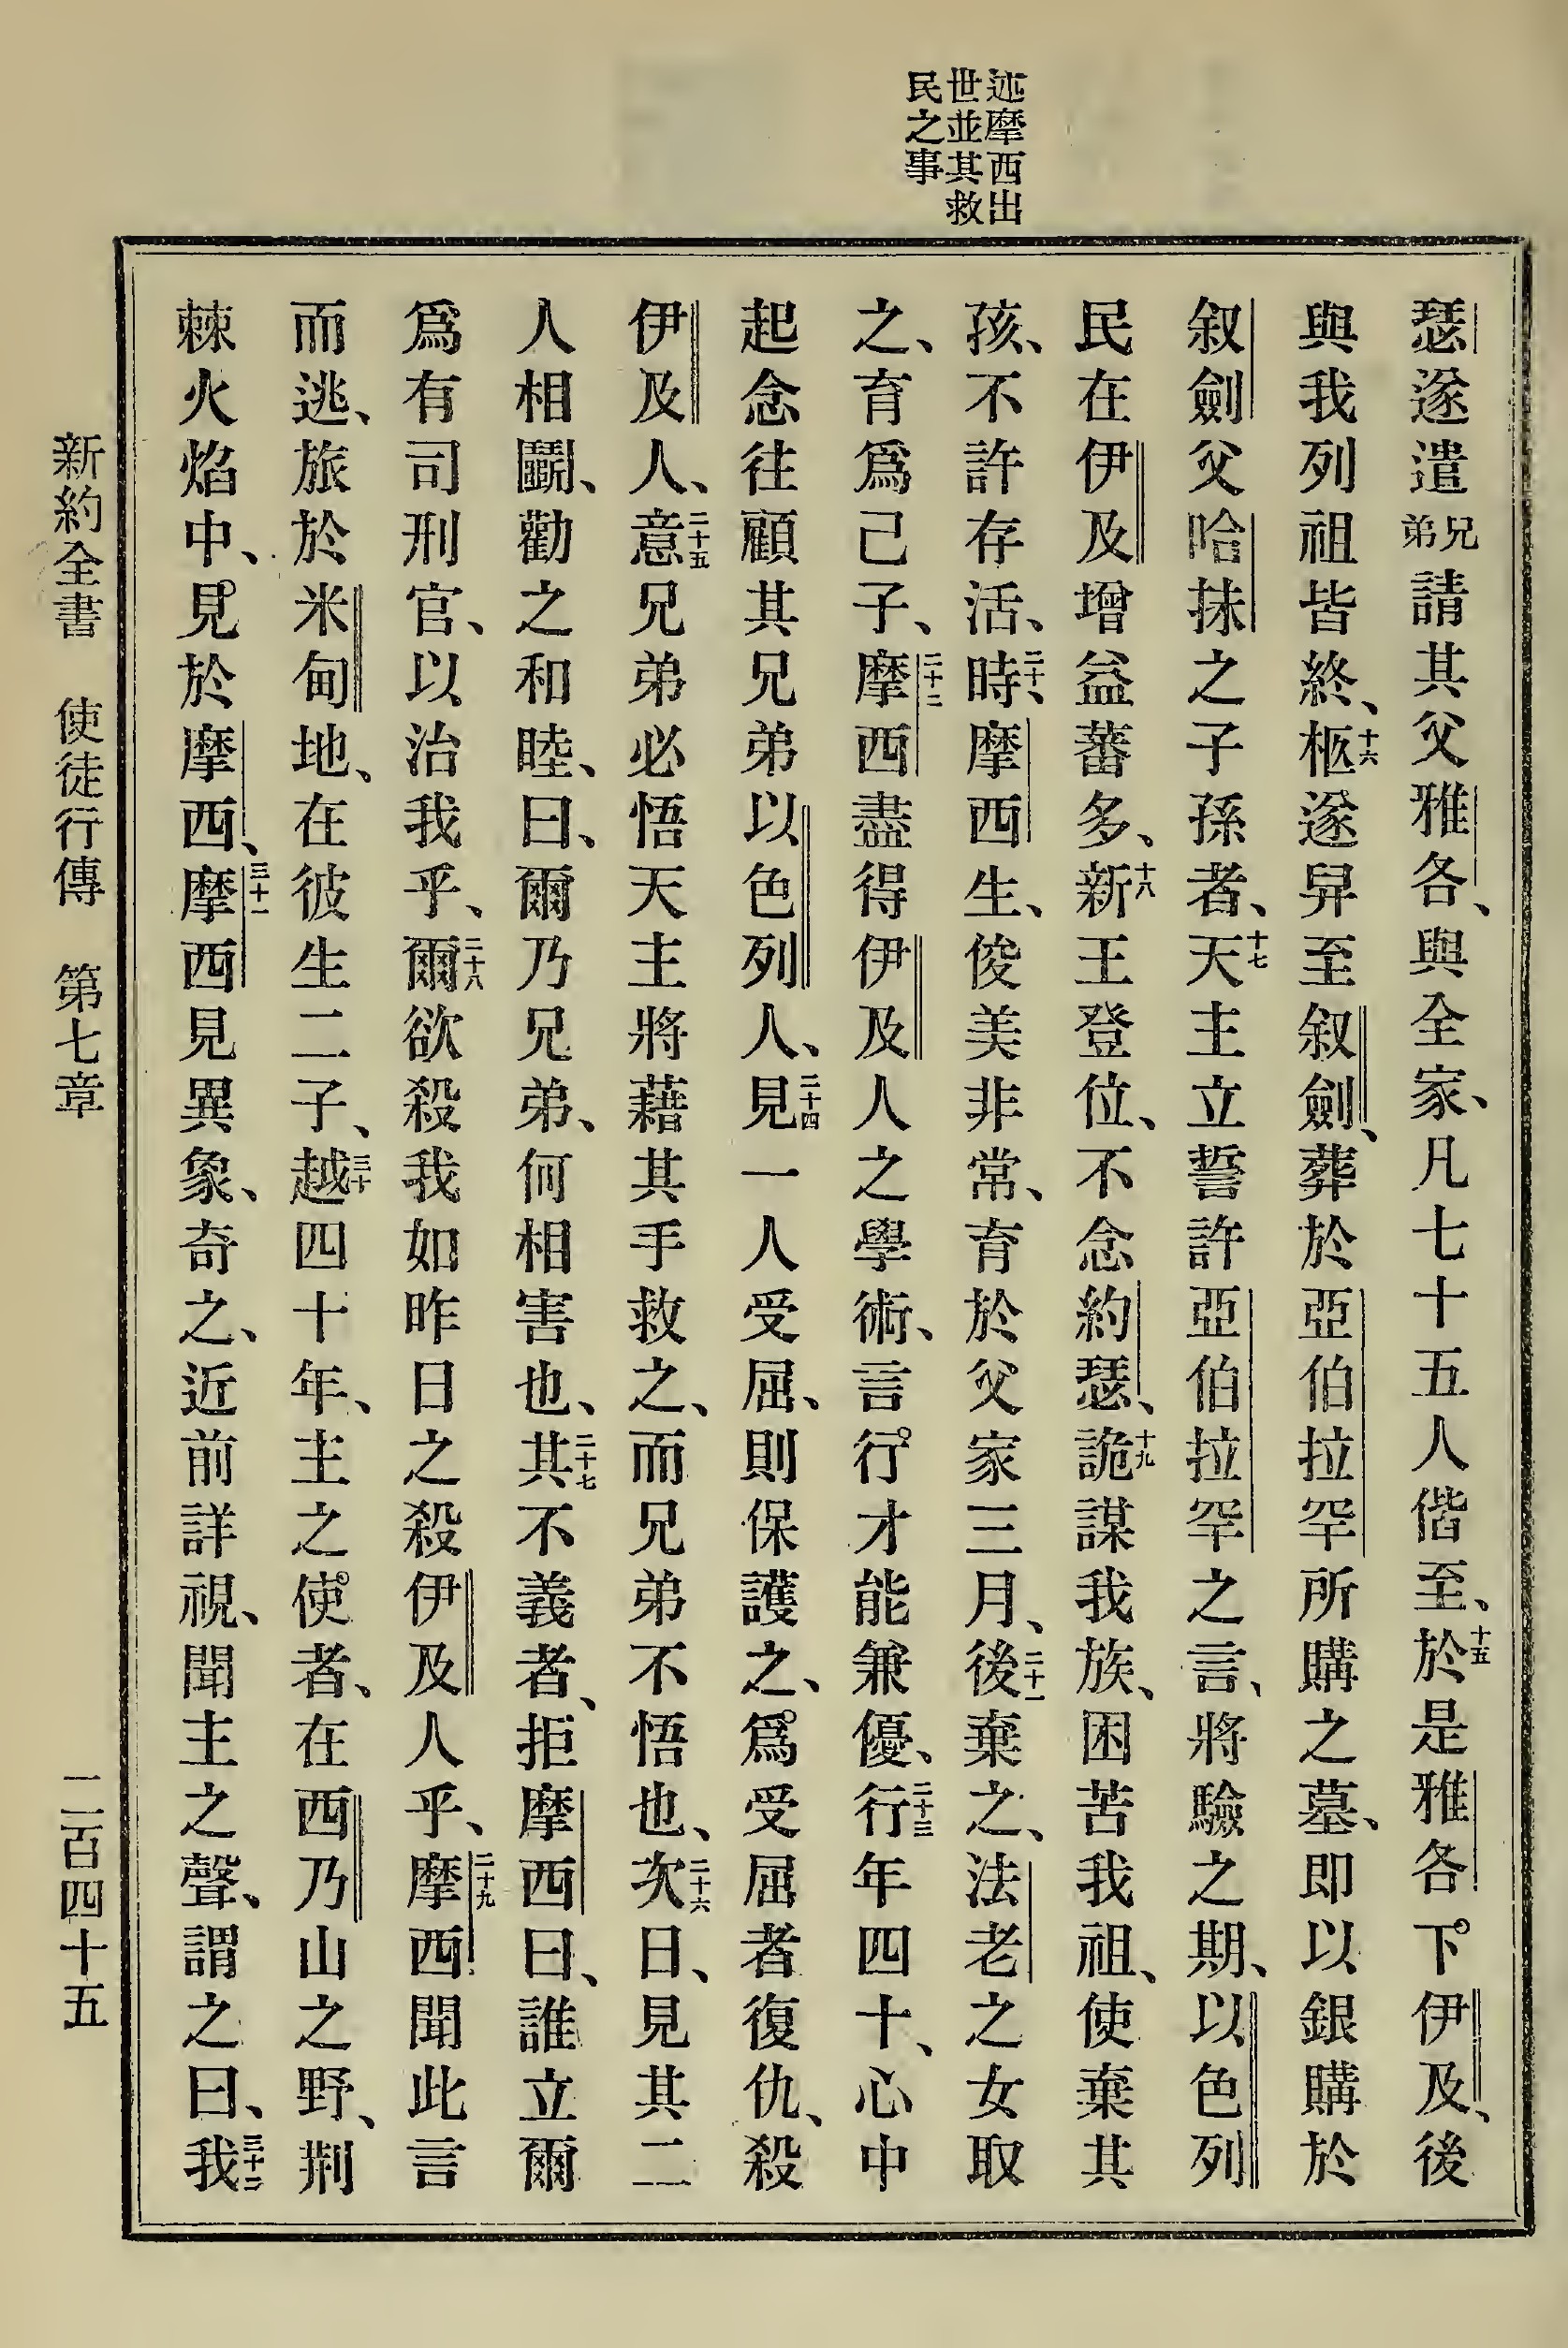 述摩西出
世並其救
民之事
瑟遂遣兄弟請其父雅各、與全家、凡七十五人偕至、十五於是雅各下伊及、後
與我列祖皆終、十六柩遂舁至叙劍、葬於亞伯拉罕所購之墓、即以銀購於
叙劍父哈抹之子孫者、十七天主立誓許亞伯拉罕之言、將驗之期、以色列
民在伊及增益蕃多、十八新王登位、不念約瑟、十九詭謀我族、困苦我祖、使棄其
孩、不許存活、二十時、摩西生、俊美非常、育於父家三月、二十一後棄之、法老之女取
之、育爲己子、二十二摩西盡得伊及人之學術、言行才能兼優、二十三行年四十、心中
起念往顧其兄弟以色列人、二十四見一人受屈、則保護之、爲受屈者復仇、殺
伊及人、二十五意兄弟必悟天主將藉其手救之、而兄弟不悟也、二十六次日、見其二
人相鬭、勸之和睦、曰、爾乃兄弟、何相害也、二十七其不義者、拒摩西曰、誰立爾
爲有司刑官、以治我乎、二十八爾欲殺我如昨日之殺伊及人乎、二十九摩西聞此言
而逃、旅於米甸地、在彼生二子、三十越四十年、主之使者、在西乃山之野、荆
棘火焰中、見於摩西、三十一摩西見異象、奇之、近前詳視、聞主之聲、謂之曰、三十二我
新約全書 使徒行傳 第七章 二百四十五